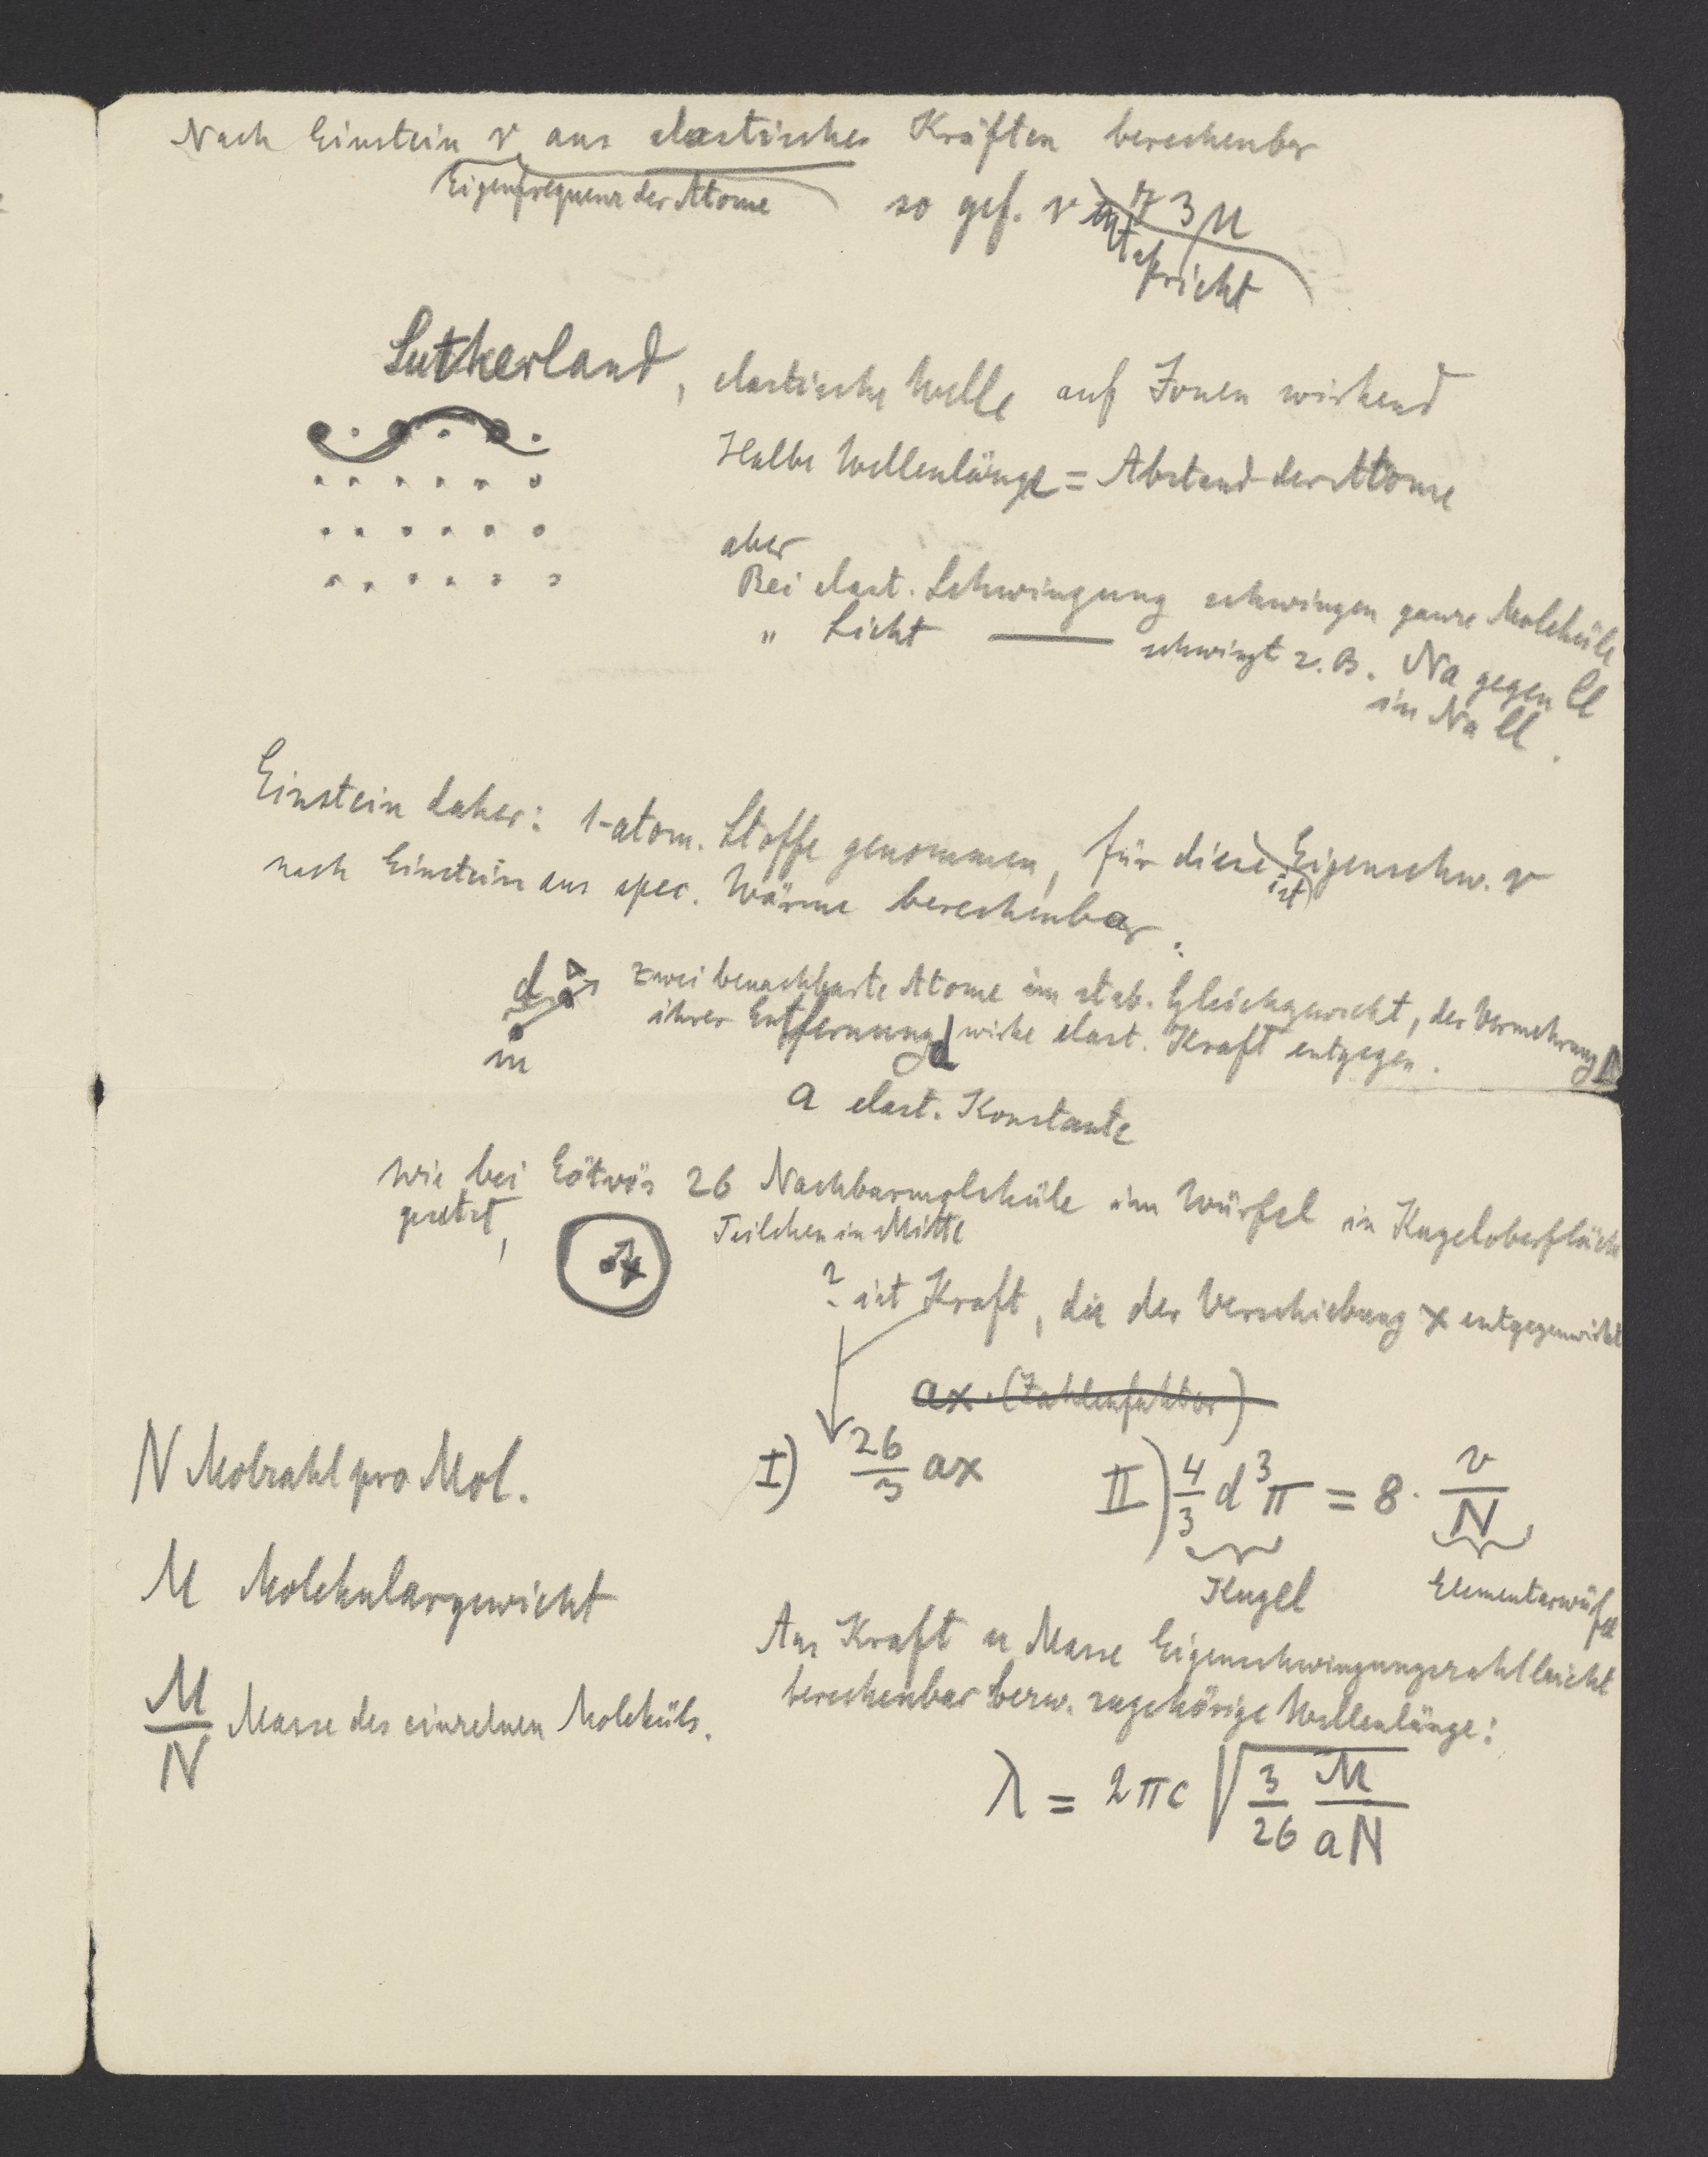 Nach Einstein ν aus elastischen Kräften berechenbar
Eigenfrequenz der Atome
so gef. ν 73 μ
entspricht
Sutherland, elastische Welle auf Ionen wirkend
Halbe Wellenlänge = Abstand der Atome
aber
Bei elast. Schwingung schwingen ganze Moleküle
" Licht — schwingt z. B. Na gegen Cl
in NaCl.
Einstein daher: 1-atom. Stoffe genommen, für diese ist Eigenschw. ν
nach Einstein aus spec. Wärme berechenbar.
d Δ zwei benachbarte Atome im stab. Gleichgewicht, der Vermehrung Δ
ihrer Entfernung d wirke elast. Kraft entgegen.
m
a elast. Konstante
wie bei Eötvös 26 Nachbarmoleküle im Würfel in Kugeloberfläche
gesetzt, Teilchen in Mitte
x
? ist Kraft, die der Verschiebung x entgegenwirkt
ax · (Zahlenfaktor)
I) 26/3 ax II) 4/3 d³π = 8 · v/N
Kugel Elementarwürfel
N Molzahl pro Mol.
M Molekulargewicht
M/N Masse des einzelnen Moleküls.
Aus Kraft u Masse Eigenschwingungszahl leicht
berechenbar bezw. zugehörige Wellenlänge:
λ = 2πc √(3/26 M/aN)